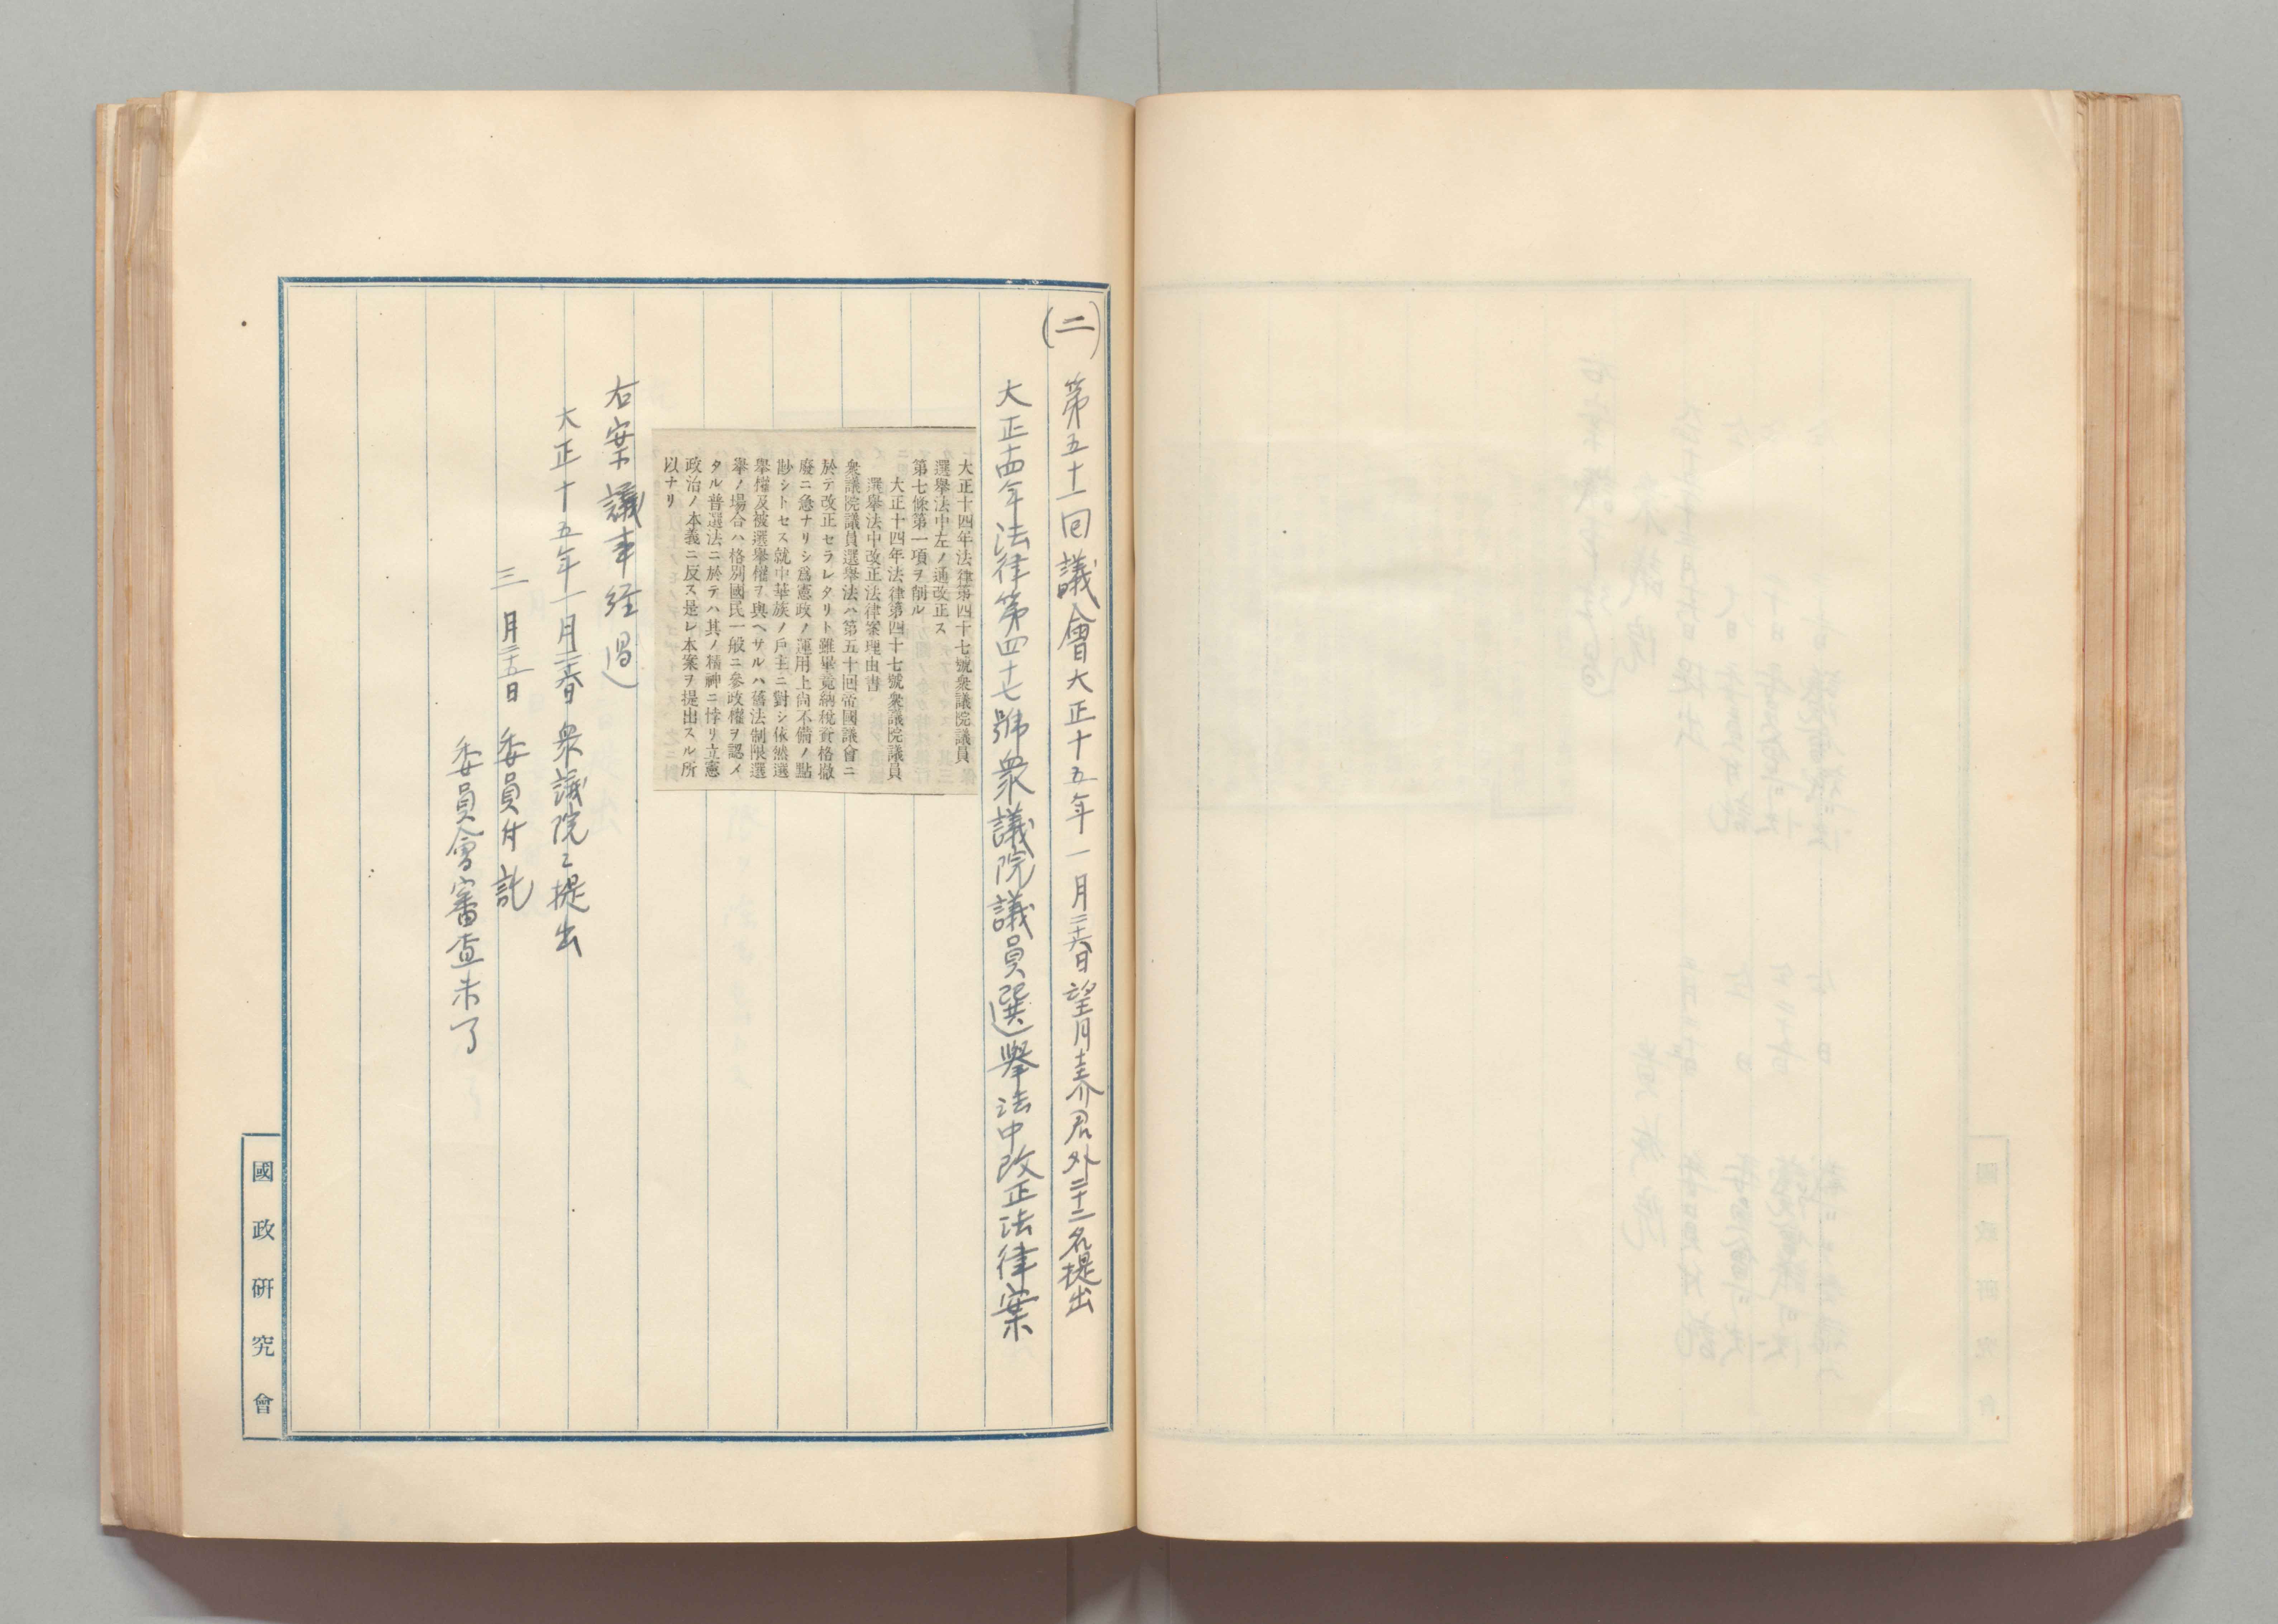 (二) 第五十一回議會大正十五年一月二十六日望月圭介君外二十二名提出
大正十四年法律第四十七號衆議院議員選擧法中改正法律案
大正十四年法律第四十七號衆議院議員
選擧法中左ノ通改正ス
第七條第一項ヲ削ル
大正十四年法律第四十七號衆議院議員
選擧法中改正法律案理由書
衆議院議員選擧法ハ第五十回帝國議會ニ
於テ改正セラレタリト雖畢竟納稅資格撤
廢ニ急ナリシ爲憲政ノ運用上尙不備ノ點
尠シトセス就中華族ノ戶主ニ對シ依然選
擧權及被選擧權ヲ與ヘサルハ舊法制限選
擧ノ場合ハ格別國民一般ニ參政權ヲ認メ
タル普選法ニ於テハ其ノ精神ニ悖リ立憲
政治ノ本義ニ反ス是レ本案ヲ提出スル所
以ナリ
右案議事経過
大正十五年一月二十六日 衆議院ニ提出
三月二十五日 委員付託
委員會審査未了
國政研究會